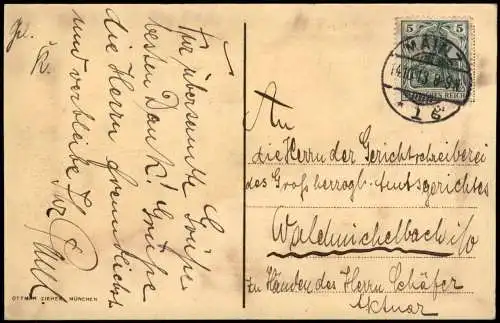 Für übersandte Grüße
besten Dank! Grüße
die Herrn freundlichst
und verbleibe Ihr
Paul
5 5
MAINZ
14. 13. 8-9N
REICH
* 1 g
An
die Herrn der Gerichtsschreiberei
des Großherzogl. Amtsgerichtes
Waldmichelbach i/o
Zu Händen des Herrn Schäfer
Aktuar
OTTMAR ZIEHER, MÜNCHEN